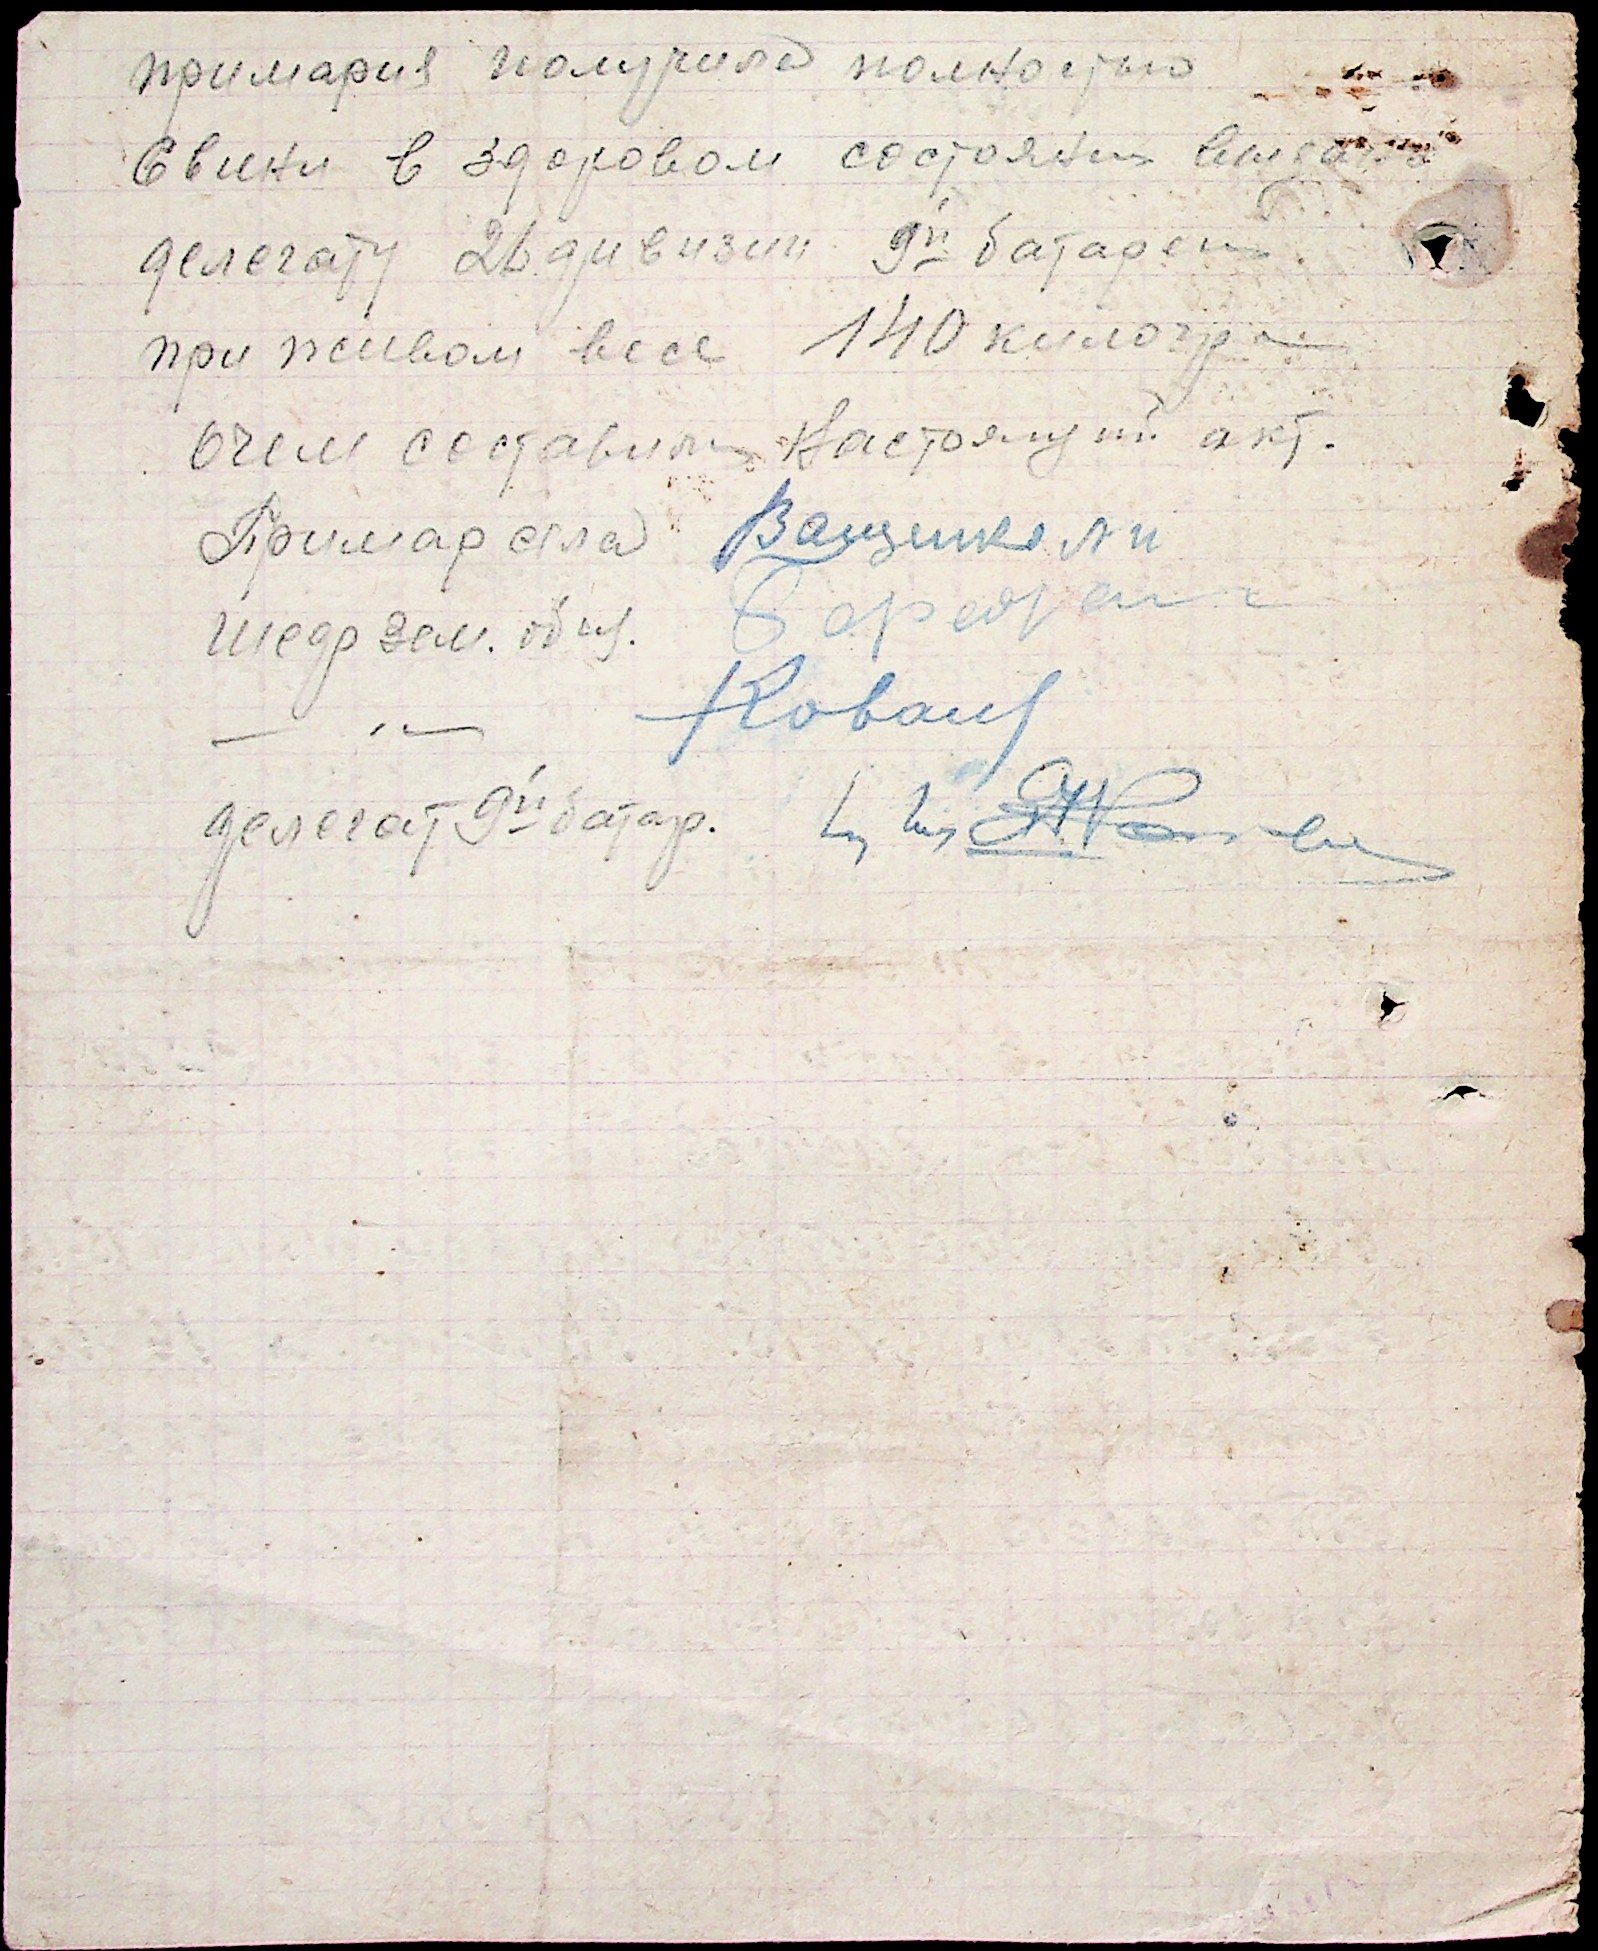 примария получила полностью
Свини в здоровом состоянии выдана
делегату 2б дивизии 9й батареи.
при живом весе 140 килогр
очем составили настоящий акт.
Примар села Ващиколи
шедр зем. общ.
— " — Коваль
делегат 9й батар.